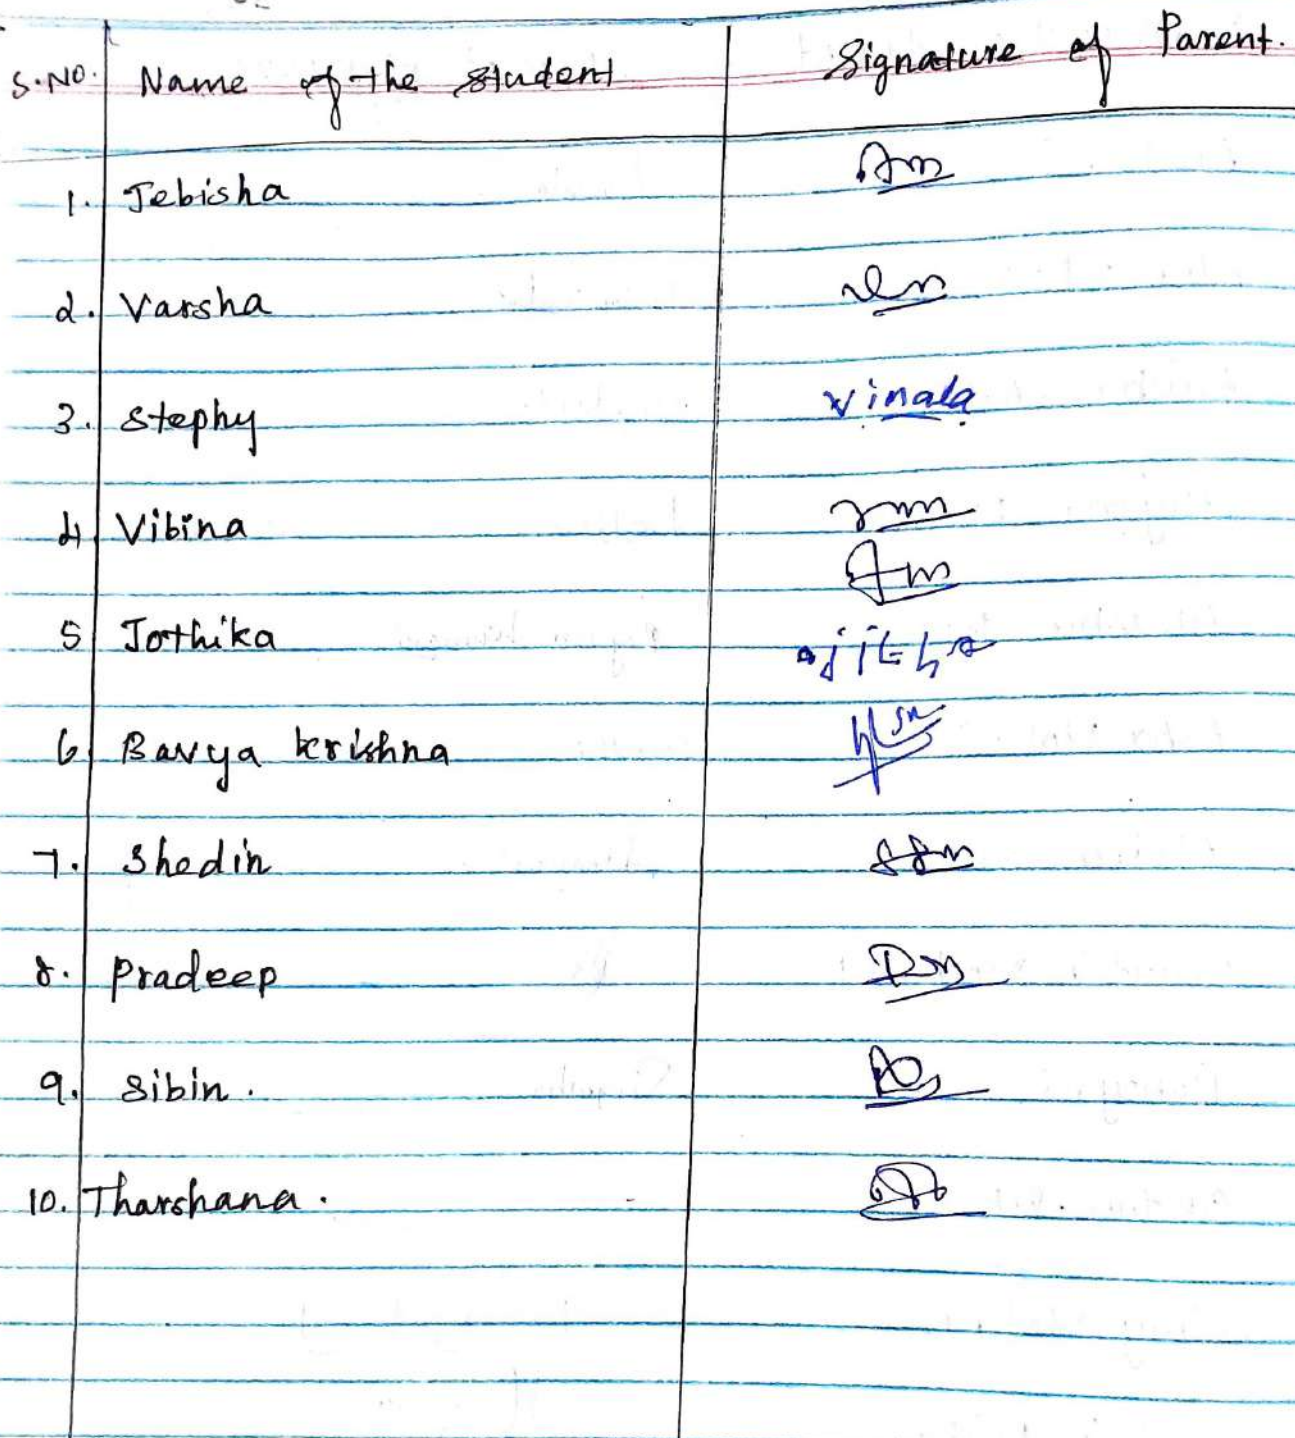 S.NO. Name of the Student Signature of Parent.
1. Jebisha
2. Varsha
3. Stephy Vinala
4 Vibina
5 Jothika ajitha
6 Bavya krishna
7. Shedin
8. Pradeep
9. Sibin.
10. Tharshana.